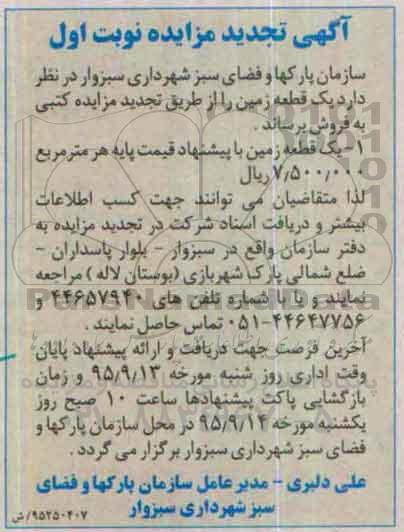 آگهی تجدید مزایده نوبت اول
سازمان پارکها و فضای سبز شهرداری سبزوار در نظر
دارد یک قطعه زمین را از طریق تجدید مزایده کتبی
به فروش برساند .
۱- یک قطعه زمین با پیشنهاد قیمت پایه هر متر مربع
۷/۵۰۰/۰۰۰ ریال
لذا متقاضیان می توانند جهت کسب اطلاعات
بیشتر و دریافت اسناد شرکت در تجدید مزایده به
دفتر سازمان واقع در سبزوار - بلوار پاسداران -
ضلع شمالی پارک شهربازی (بوستان لاله ) مراجعه
نمایند و یا با شماره تلفن های ۴۴۶۵۷۹۴۰ و
۰۵۱-۴۴۶۴۷۷۵۶ تماس حاصل نمایند .
آخرین فرصت جهت دریافت و ارائه پیشنهاد پایان
وقت اداری روز شنبه مورخه ۹۵/۹/۱۳ و زمان
بازگشایی پاکت پیشنهادها ساعت ۱۰ صبح روز
یکشنبه مورخه ۹۵/۹/۱۴ در محل سازمان پارکها و
فضای سبز شهرداری سبزوار برگزار می گردد .
علی دلبری - مدیر عامل سازمان پارکها و فضای
سبز شهرداری سبزوار
۹۵۲۵۰۴۰۷/ش